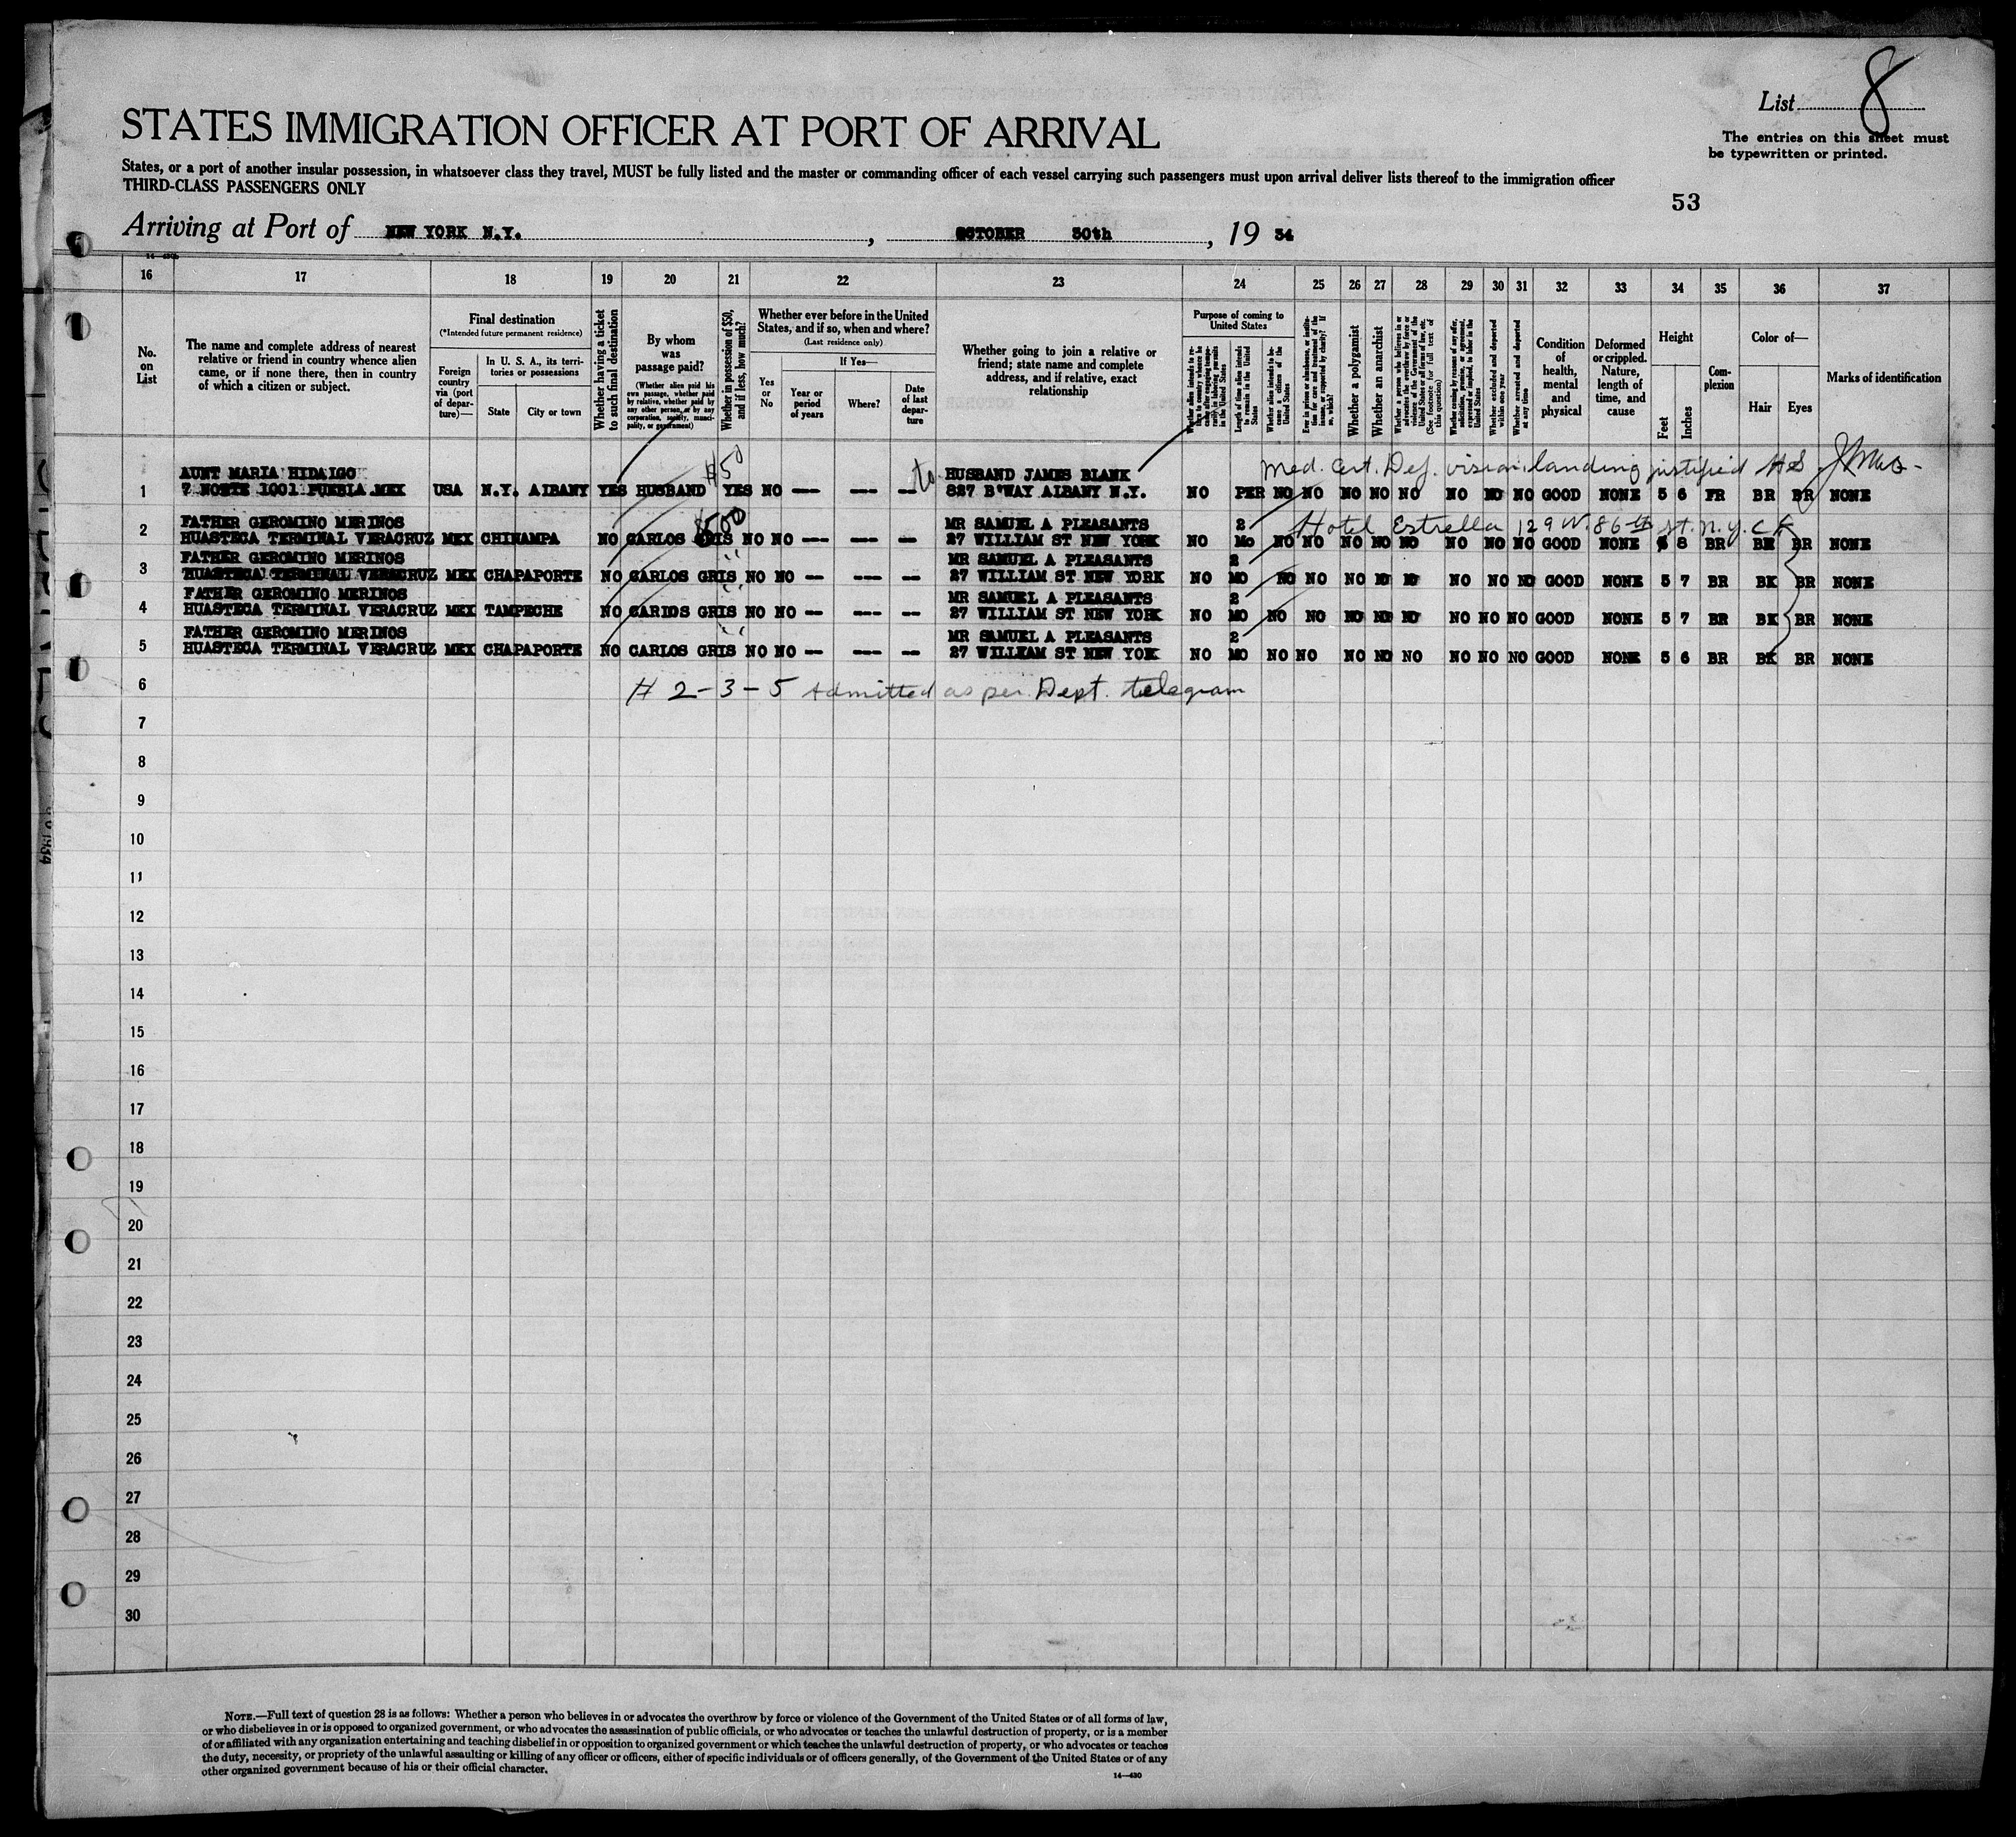 List 8
STATES IMMIGRATION OFFICER AT PORT OF ARRIVAL
The entries on this sheet must
be typewritten or printed.
States, or a port of another insular possession, in whatsoever class they travel, MUST be fully listed and the master or commanding officer of each vessel carrying such passengers must upon arrival deliver lists thereof to the immigration officer
THIRD-CLASS PASSENGERS ONLY
53
Arriving at Port of NEW YORK N.Y. , OCTOBER 30th , 19 34
16 17 18 19 20 21 22 23 24 25 26 27 28 29 30 31 32 33 34 35 36 37
No.
on
List
The name and complete address of nearest
relative or friend in country whence alien
came, or if none there, then in country
of which a citizen or subject.
Final destination
(*Intended future permanent residence)
Foreign
country
via (port
of depar-
ture)—
In U. S. A., its terri-
tories or possessions
State
City or town
Whether having a ticket
to such final destination
By whom
was
passage paid?
(Whether alien paid his
own passage, whether paid
by relative, whether paid by
any other person, or by any
corporation, society, munici-
pality, or government)
Whether in possession of $50,
and if less, how much?
Whether ever before in the United
States, and if so, when and where?
(Last residence only)
Yes
or
No
If Yes—
Year or
period
of years
Where?
Date
of last
depar-
ture
Whether going to join a relative or
friend; state name and complete
address, and if relative, exact
relationship
Purpose of coming to
United States
Length of time alien intends
to remain in the United
States
Whether alien intends to be-
come a citizen of the
United States
Whether a polygamist
Whether an anarchist
(See footnote for full text of
this question)
Whether excluded and deported
within one year
Whether arrested and deported
at any time
Condition
of
health,
mental
and
physical
Deformed
or crippled.
Nature,
length of
time, and
cause
Height
Feet
Inches
Com-
plexion
Color of—
Hair
Eyes
Marks of identification
$50
to
Med. Cert. Def. vision. landing justified HS
AUNT MARIA HIDAIGO HUSBAND JAMES BLANK
1 7 NORTE 1001 PUEBLA MEX USA N.Y. AIBANY YES HUSBAND YES NO --- --- -- 827 B'WAY AIBANY N.Y. NO PER NO NO NO NO NO NO NO NO GOOD NONE 5 6 FR BR BR NONE
$500
FATHER GEROMINO MERINOS MR SAMUEL A PLEASANTS 2 Hotel Estrella 129 W. 86th St. N.Y.C
2 HUASTECA TERMINAL VERACRUZ MEX CHINAMPA NO CARLOS GRIS NO NO --- --- -- 27 WILLIAM ST NEW YORK NO MO NO NO NO NO NO NO NO NO GOOD NONE 5 8 BR BK BR NONE
FATHER GEROMINO MERINOS MR SAMUEL A PLEASANTS 2
3 HUASTECA TERMINAL VERACRUZ MEX CHAPAPORTE NO CARLOS GRIS NO NO -- --- -- 27 WILLIAM ST NEW YORK NO MO NO NO NO NO NO NO NO NO GOOD NONE 5 7 BR BK BR NONE
FATHER GEROMINO MERINOS MR SAMUEL A PLEASANTS 2
4 HUASTECA TERMINAL VERACRUZ MEX TAMPECHE NO CARIOS GRIS NO NO -- --- -- 27 WILLIAM ST NEW YORK NO MO NO NO NO NO NO NO NO NO GOOD NONE 5 7 BR BK BR NONE
FATHER GEROMINO MERINOS MR SAMUEL A PLEASANTS 2
5 HUASTECA TERMINAL VERACRUZ MEX CHAPAPORTE NO CARLOS GRIS NO NO -- --- -- 27 WILLIAM ST NEW YOK NO MO NO NO NO NO NO NO NO NO GOOD NONE 5 6 BR BK BR NONE
6 # 2-3-5 Admitted as per Dept. telegram
7
8
9
10
11
12
13
14
15
16
17
18
19
20
21
22
23
24
25
26
27
28
29
30
NOTE.—Full text of question 28 is as follows: Whether a person who believes in or advocates the overthrow by force or violence of the Government of the United States or of all forms of law,
or who disbelieves in or is opposed to organized government, or who advocates the assassination of public officials, or who advocates or teaches the unlawful destruction of property, or is a member
of or affiliated with any organization entertaining and teaching disbelief in or opposition to organized government or which teaches the unlawful destruction of property, or who advocates or teaches
the duty, necessity, or propriety of the unlawful assaulting or killing of any officer or officers, either of specific individuals or of officers generally, of the Government of the United States or of any
other organized government because of his or their official character.
14—430